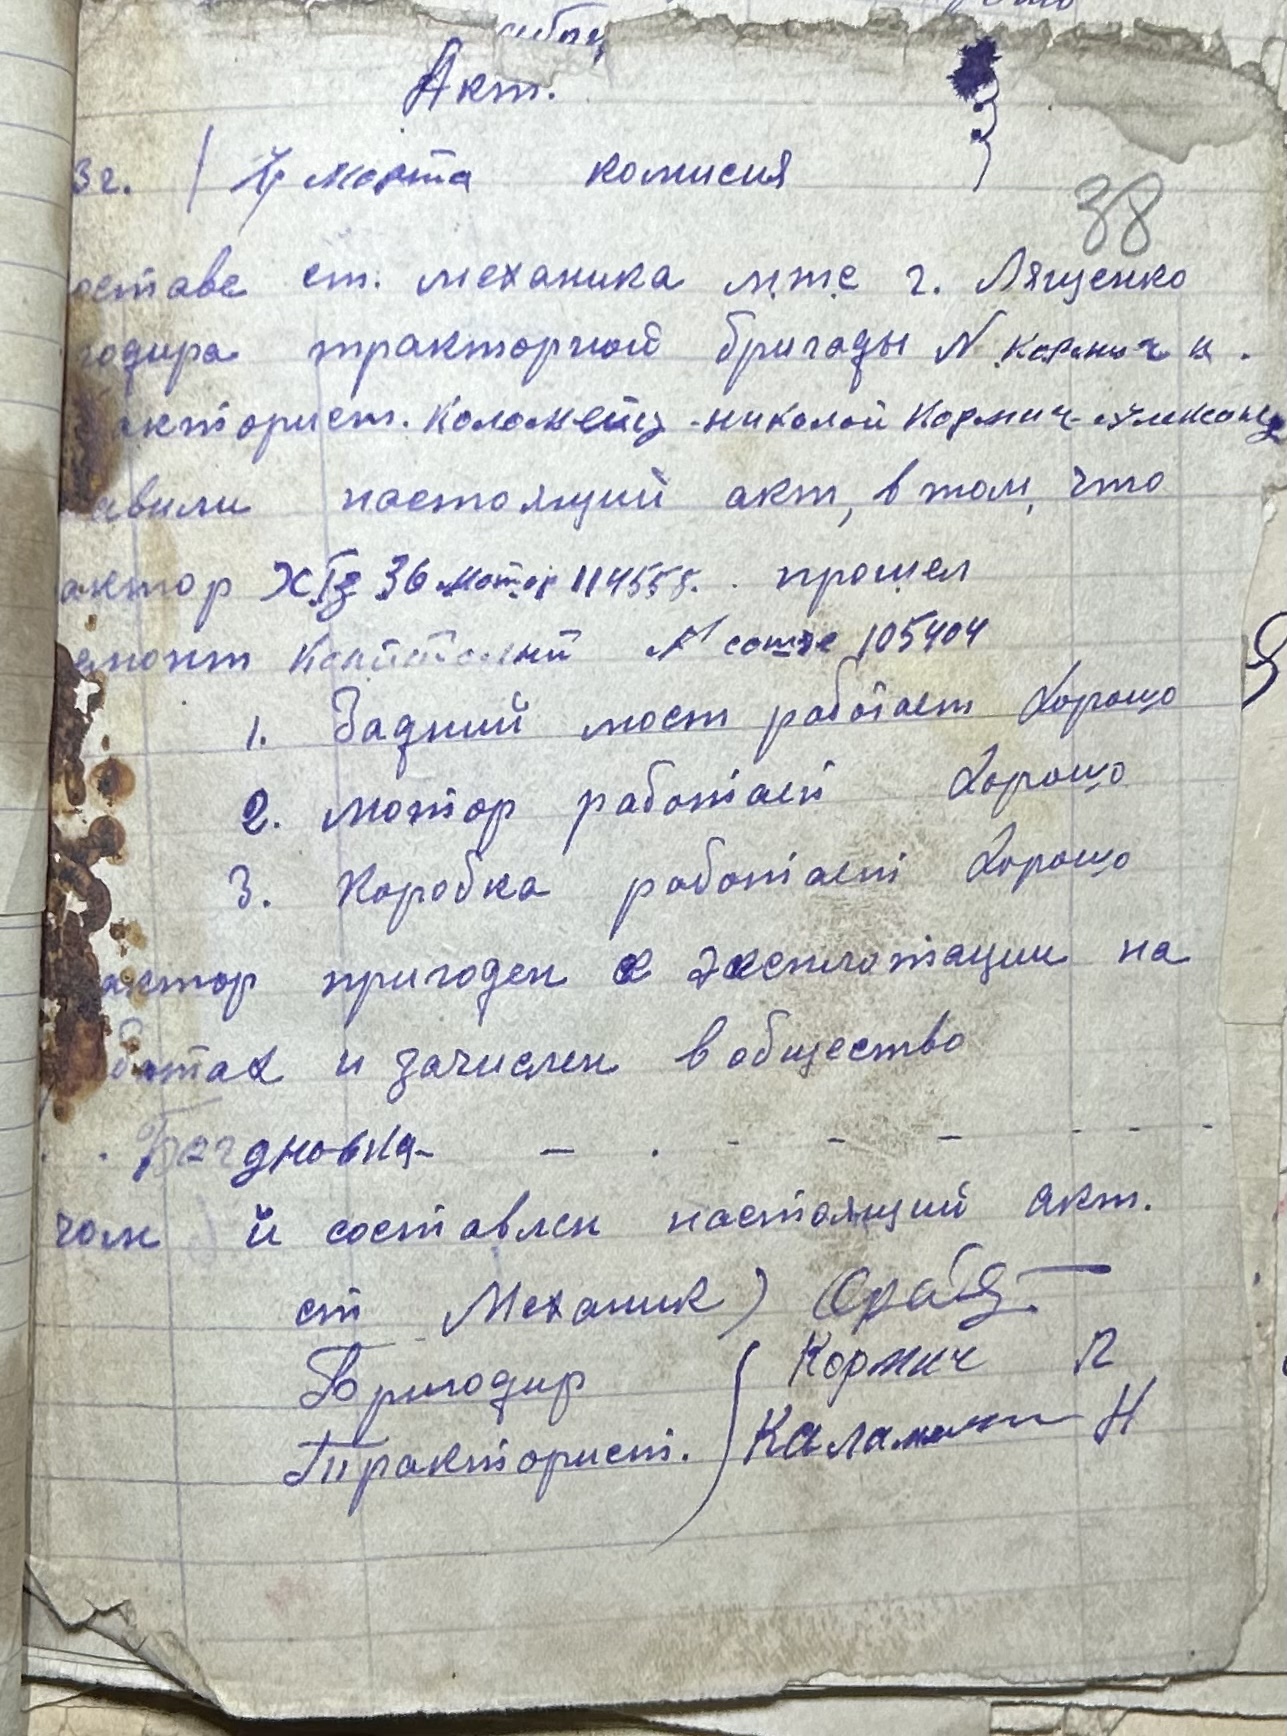 Акт.
3г. / марта комисия
38
оставе ст. механика м.т.с г. Лященко
годира тракторной бригады N Кормич
кторист. Коломеец николай Кормич
авили настоящий акт, в том, что
актор ХТЗ 36 мотор 114558. прошел
емонт Капитални N 105404
1. Задний мост работает Хорошо
2. мотор работает Хорошо
3. Коробка работает Хорошо
актор пригоден к эксплотации на
ботах и зачислен в общество
дновка- - . - - - - - -
чом й составлен настоящий акт.
ст Механик )
Бригодир Кормич П
Тракторист. Н